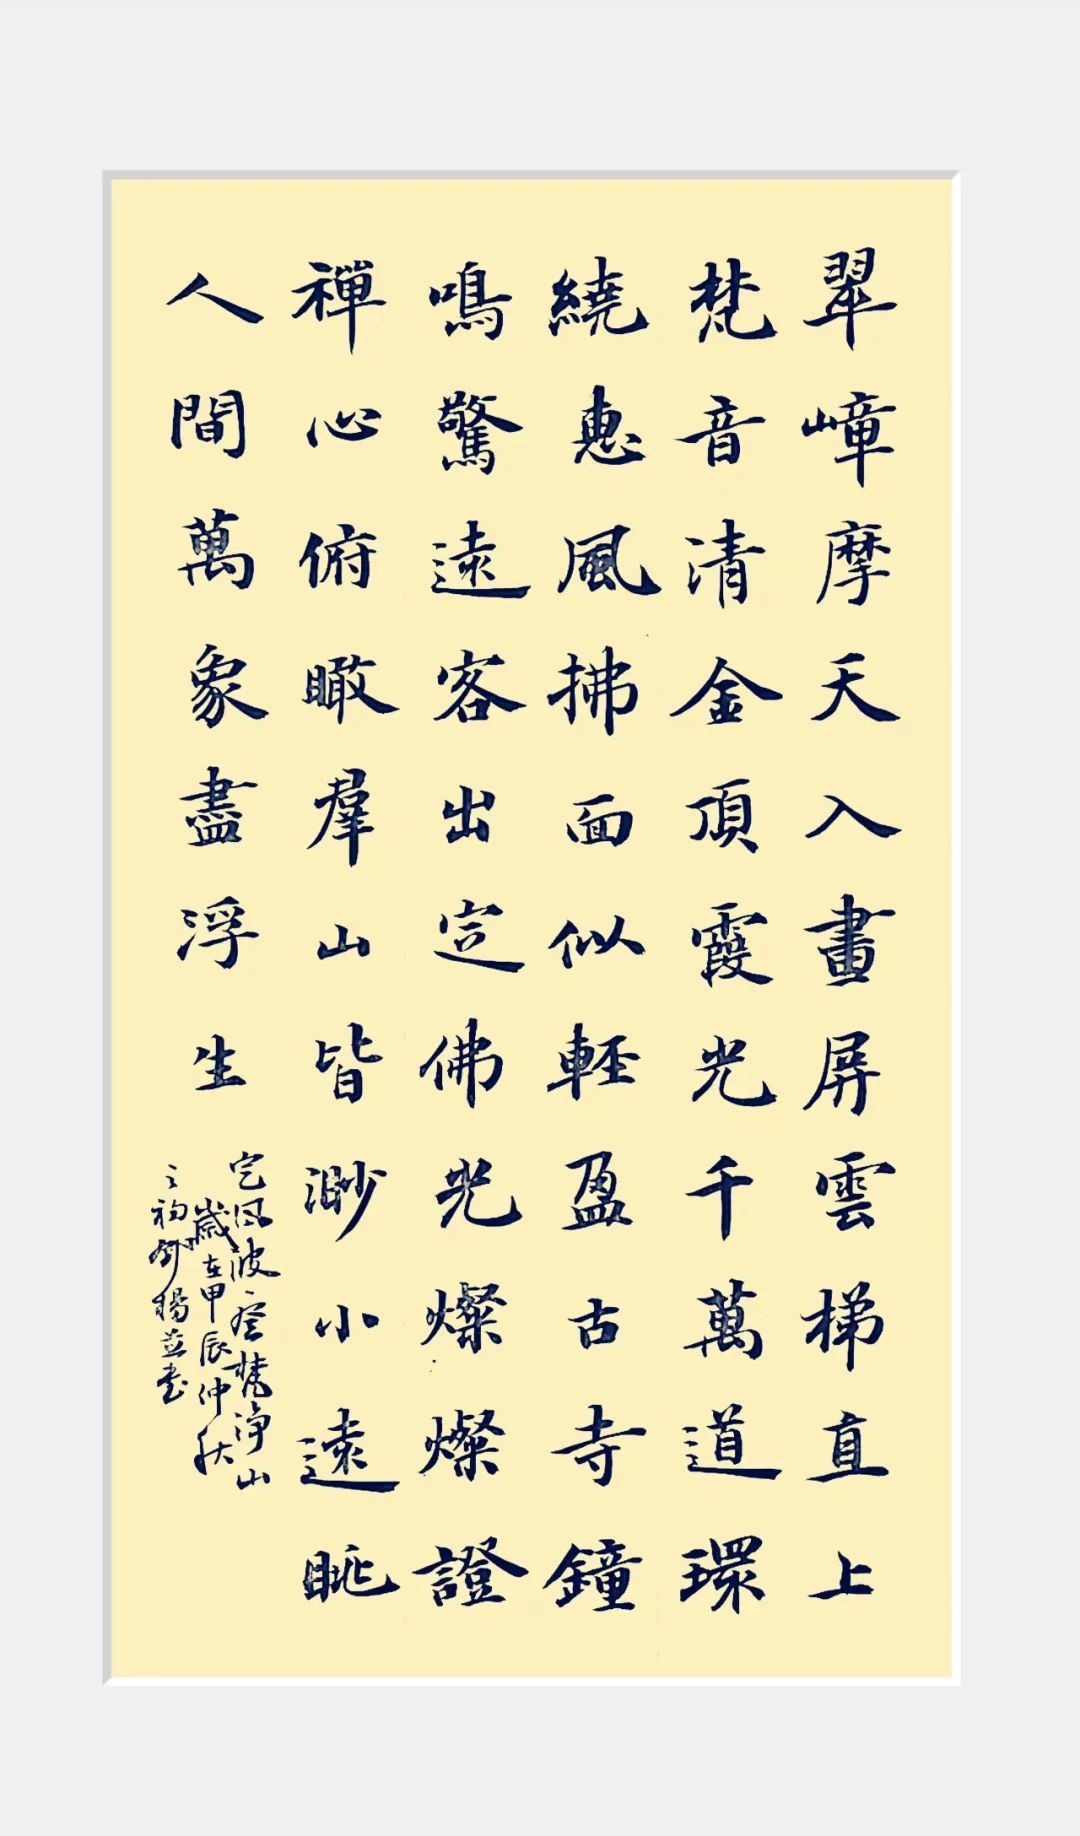 翠嶂摩天入畫屏雲梯直上
梵音清金頂霞光千萬道環
繞惠風拂面似輕盈古寺鐘
鳴驚遠客出定佛光燦燦證
禪心俯瞰羣山皆渺小遠眺
人間萬象盡浮生
定風波登梵淨山
歲在甲辰仲秋
之初 楊 書